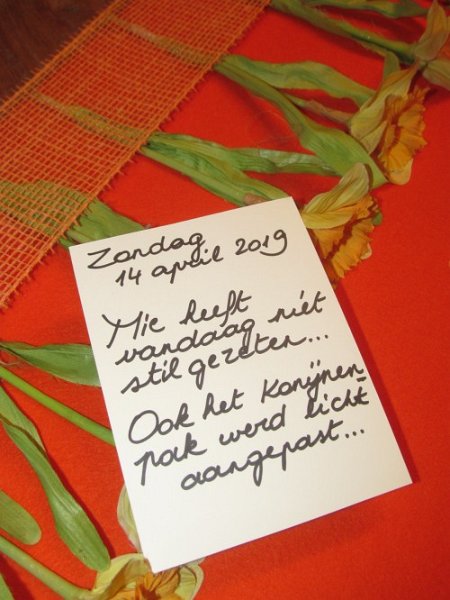 Zondag
14 april 2019
Mie heeft
vandaag niét
stil gezeten...
Ook het Konijnen
pak werd licht
aangepast...